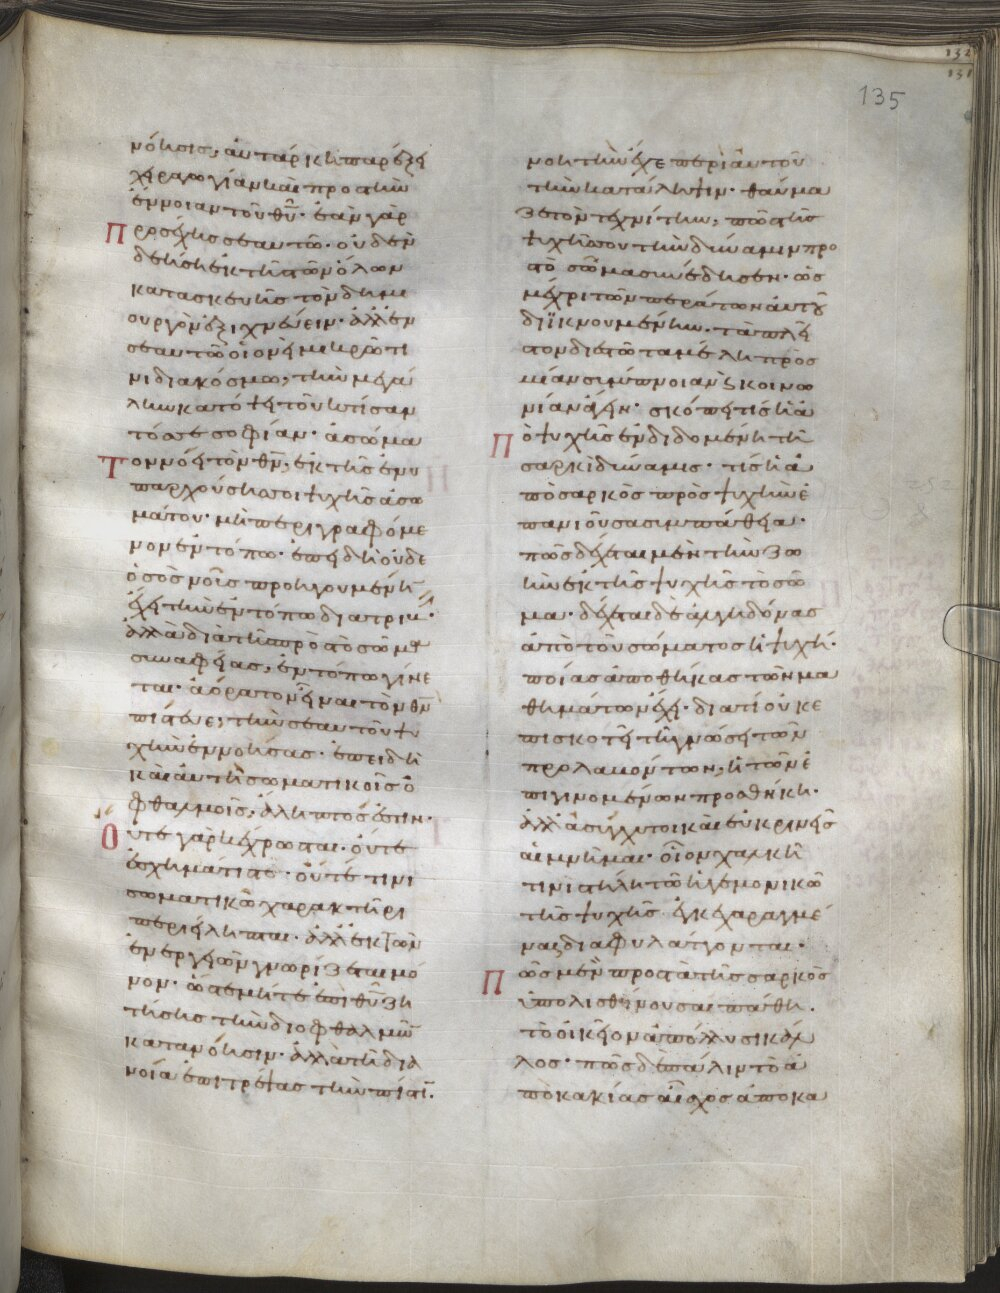 νόησις, αὐτάρκη παρέξει
χειραγωγίαν καὶ προς τὴν
ἔννοιαν τοῦ θῦ· ἐὰν γὰρ
προσέχης σεαυτῶ· οὐδεν
δεήση ἐκ τῆς τῶν ὅλων
κατασκευῆς τὸν δημι
ουργὸν ἐξιχνεύειν· ἀλλ' ἐν
σεαυτῶ οἱονεὶ μικρῶ τι
νι διακόσμω, τὴν μεγά
λην κατόψει τοῦ κτίσαν
τός σε σοφίαν· ἀσώμα
τον νόει τὸν θν̄, ἐκ τῆς ἐνυ
παρχούσης σοι ψυχῆς ἀσω
μάτου· μὴ περιγραφόμε
νον ἐν τόπω· ἐπειδὴ οὐδε
ὁ σὸς νοῦς προηγουμένη̄
ἔχει τὴν ἐν τόπω διατριβή·
ἀλλὰ διὰ τῆς πρὸς τὸ σῶμα
συναφείας, ἐν τόπω γίνε
ται· ἀόρατον εἶναι τὸν θν̄
πίστευε, τὴν σεαυτοῦ ψυ
χὴν ἐννοήσας· ἐπειδὴ
καὶ αὐτὴ σωματικοῖς ὀ
φθαλμοῖς, ἄληπτός ἐστιν·
Οὔτε γὰρ κέχρωσται· οὔτε
ἐσχημάτισται· οὔτέ τινι
σωματικῶ χαρακτῆρι
περιείληπται· ἀλλ' ἐκ τῶν
ἐνεργειῶν γνωρίζεται μό
νον· ὥστε μήτε ἐπὶ θῦ ζη
τήσης τὴν δι ὀφθαλμῶ̄
κατανόησιν· ἀλλὰ τῆ δια
νοία ἐπιτρέψας τὴν πίστῑ·
νοητὴν ἔχε περὶ αὐτοῦ
τὴν κατάληψιν· θαύμα
ζε τὸν τεχνίτην, πῶς τῆς
ψυχῆς σου τὴν δύναμιν προ
τὸ σῶμα συνέδησεν· ὡς
μέχρι τῶν περάτων αὐτοῦ
διϊκνουμένην· τὰ πλεῖ
στον διεστῶτα μέλη πρὸς
μίαν σύμπνοιαν ϗ κοινω
νίαν ἄγειν· σκόπει τίς ἡ ἀ
πὸ ψυχῆς ἐνδιδομένη τῆ
σαρκὶ δύναμις· τίς ἡ ἀ
πὸ σαρκὸς πρὸς ψυχὴν ἐ
πανιοῦσα συμπάθεια·
πῶς δέχεται μὲν τὴν ζω
ὴν ἐκ τῆς ψυχῆς τὸ σῶ
μα· δέχεται δὲ ἀλγηδόνας
ἀπὸ τοῦ σώματος ἡ ψυχή·
ποίας ἀποθήκας τῶν μα
θημάτων ἔχει· διατί οὐκ ἐ
πισκοτεῖ τῆ γνώσει τῶν
προλαβόντων, ἡ τῶν ἐ
πιγινομένων προσθήκη·
ἀλλ' ἀσύγχυτοι καὶ εὐκρινεῖς
αἱ μνῆμαι· οἷον χαλκῆ
τινι στήλη τῶ ἡγεμονικῶ
τῆς ψυχῆς ἐγκεχαραγμέ
ναι διαφυλάττονται·
πῶς μὲν προς τὰ τῆς σαρκὸς
ὑπολισθαίνουσα πάθη·
τὸ οἰκεῖον ἀπόλλυσι κάλ
λος· πῶς δὲ πάλιν τὸ ἀ
πὸ κακίας αἶσχος ἀποκα
135
132
131